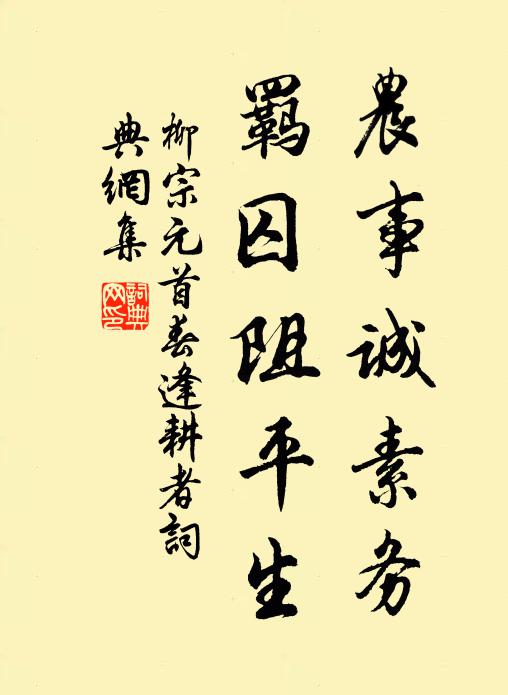 農事誠素务
羁囚阻平生
柳宗元首春逢耕者詞
典網集
詞典
网印